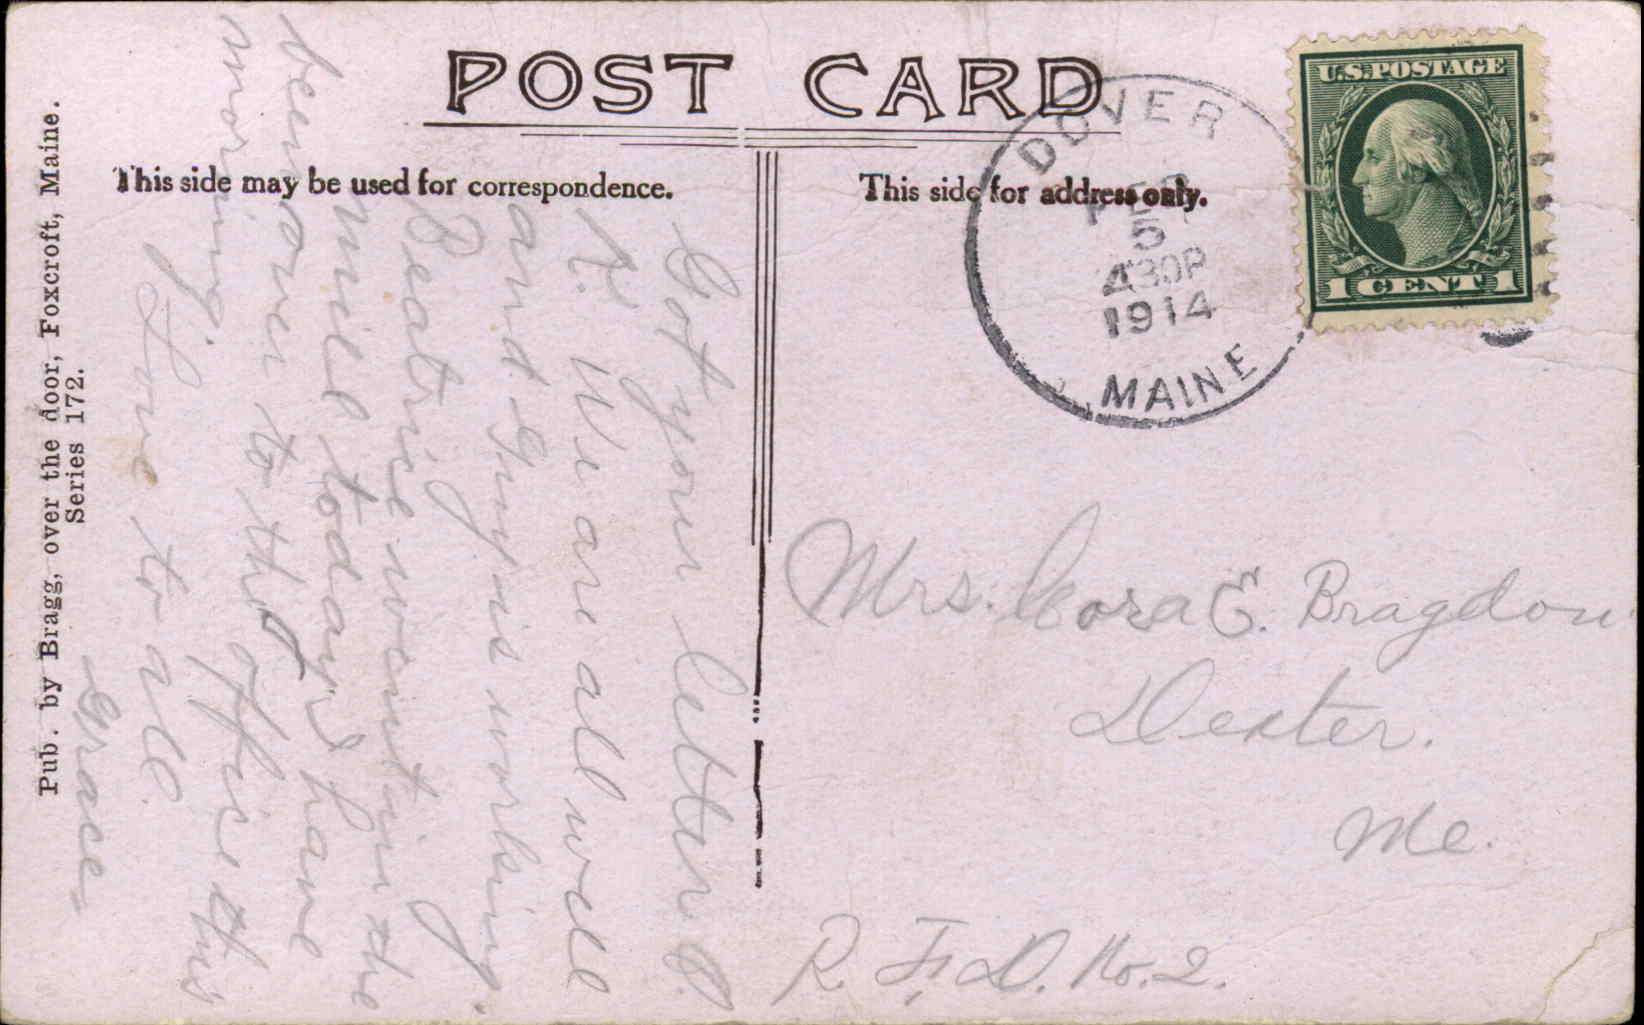 POST CARD
This side may be used for correspondence.
This side for address only.
U.S. POSTAGE
1 CENT 1
DOVER
FEB
5
4 30P
1914
MAINE
Got your letter O.
K. We are all well
and Guy is working.
Beatrice went in the
mill today I have
been over to the office this
morning.
Love to all
Grace
Mrs. Cora E. Bragdon
Dexter.
Me.
R. F. D. No. 2.
Pub. by Bragg, over the door, Foxcroft, Maine.
Series 172.